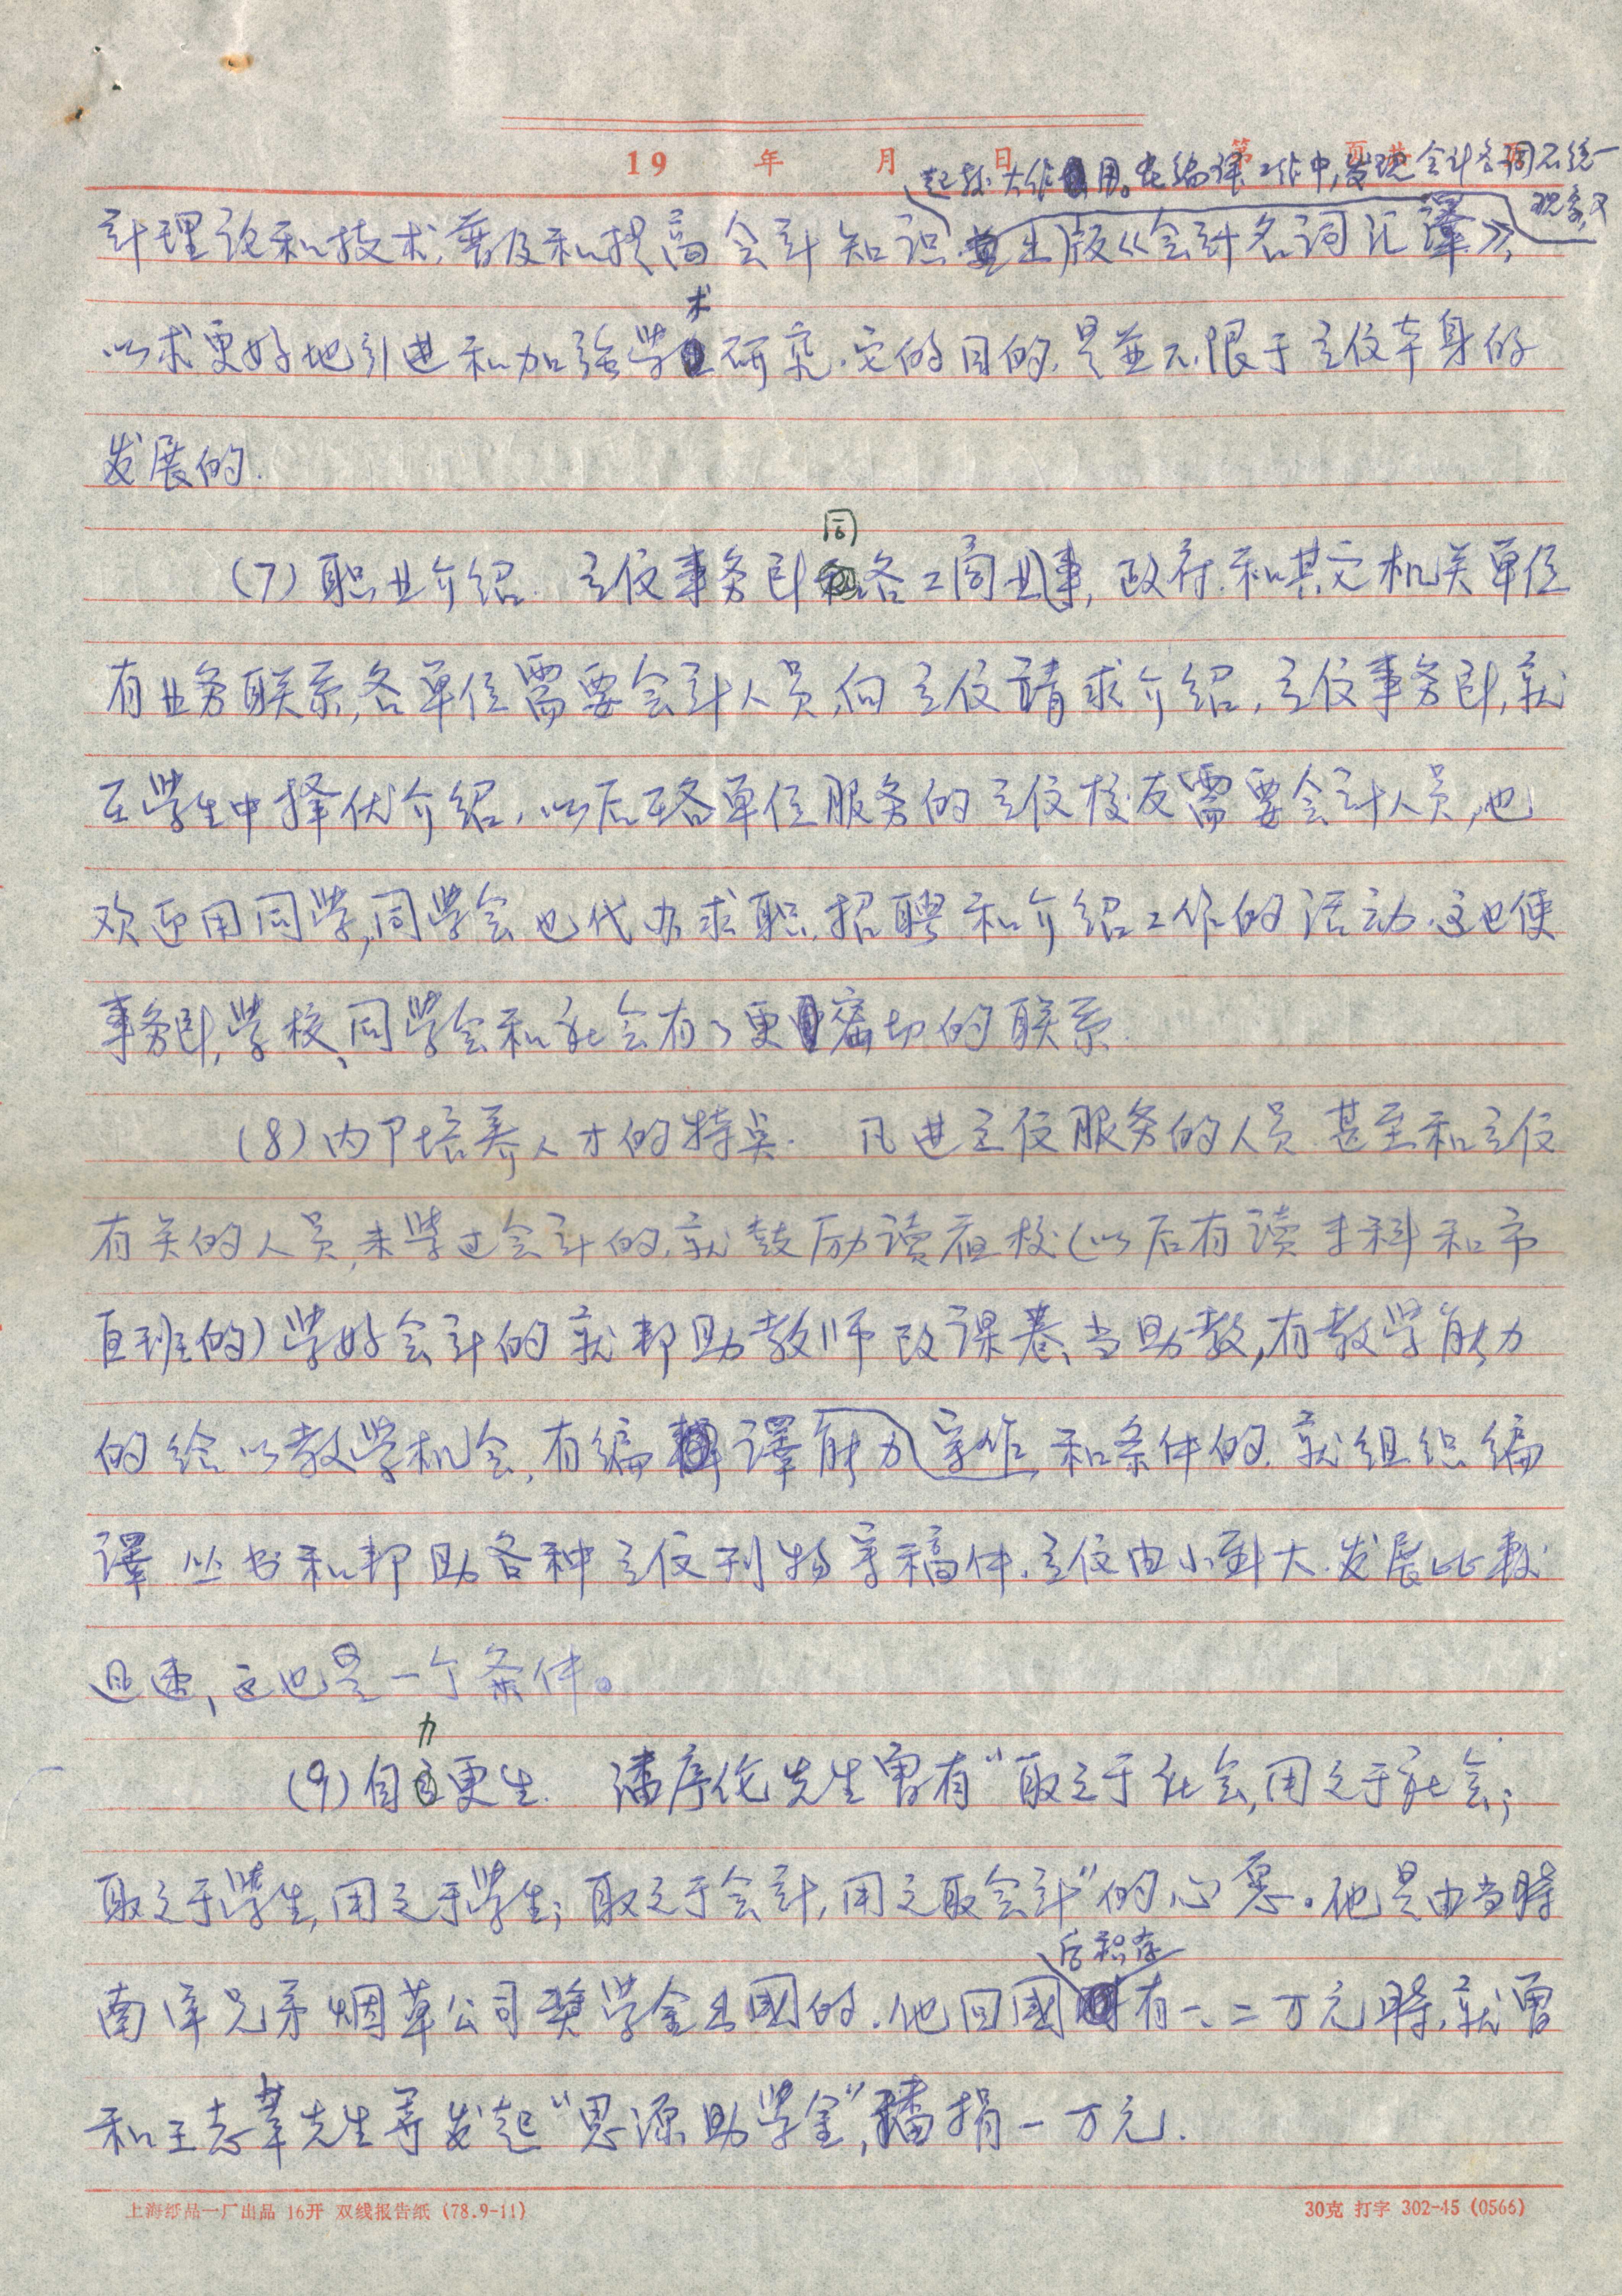 19 年 月 日 第 页共
起较大作用。在编译工作中,发现会计名词不统一
现象,又
计理论和技术,普及和提高会计知识 出版《会计名词汇譯》,
术
以求更好地引进和加强学研究.它的目的.是並不限于立信本身的
发展的.
同
(7)职业介绍. 立信事务所各工商业,政府.和其它机关单位
有业务联系,各单位需要会计人员,向立信請求介绍,立信事务所,就
在学生中择优介绍,以后在各单位服务的立信校友需要会计人员,也
欢迎用同学,同学会也代办求职.招聘和介绍工作的活动.这也使
事务所,学校、同学会和社会有了更密切的联系.
(8)内卩培养人才的特点. 凡进立信服务的人员甚至和立信
有关的人员,未学过会计的,就鼓励读夜校(以后有读本科和市
直班的)学好会计的就帮助教师改课卷、当助教,有教学能力
的给以教学机会,有编譯能力写作,和条件的.就组织编
譯丛书和帮助各种立信刊物写稿件.立信由小到大.发展比较
迅速,这也是一个条件。
力
(9)自更生. 潘序伦先生曾有“取之于社会,用之于社会;
取之于学生,用之于学生;取之于会计,用之取会计”的心愿。他是由当时
后积存
南洋兄弟烟草公司奖学金出國的.他回國有一、二万元時,就曾
和王志莘先生等发起“思源助学金”,潘捐一万元.
上海纸品一厂出品 16开 双线报告纸 (78.9-11) 30克 打字 302-45 (0566)